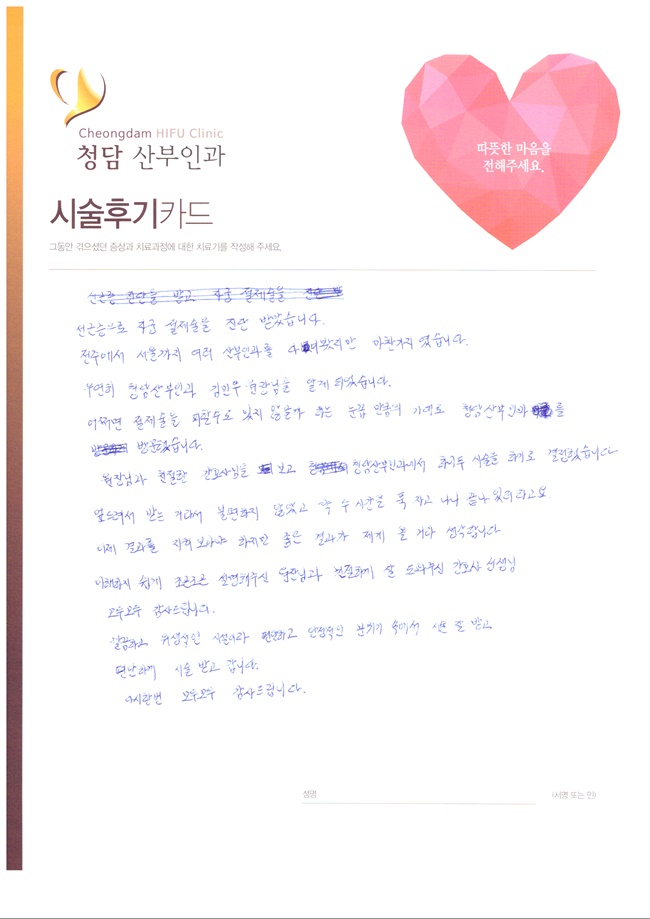 Cheongdam HIFU Clinic
청담 산부인과
따뜻한 마음을
전해주세요.
시술후기카드
그동안 겪으셨던 증상과 치료과정에 대한 치료기를 작성해 주세요.
선근증 진단을 받고 자궁 절제술을 진단 받
선근증으로 자궁 절제술을 진단 받았습니다.
전주에서 서울까지 여러 산부인과를 다녀봤지만 마찬가지였습니다.
우연히 청담산부인과 김민우 원장님을 알게 되었습니다.
어쩌면 절제술을 피할수도 있지 않을까 하는 눈꼽 만큼의 기대로 청담산부인과를
방문했습니다.
원장님과 친절한 간호사님을 보고 청담산부인과에서 하이푸 시술을 하기로 결정했습니다
엎드려서 받는 거라서 불편하지 않았고 약 두시간을 푹 자고 나니 끝나 있더라고요
이제 결과를 지켜 보아야 하지만 좋은 결과가 제게 올 거라 생각합니다
이해하기 쉽게 조곤조곤 설명해주신 원장님과 친절하게 잘 도와주신 간호사 선생님
모두모두 감사드립니다.
깔끔하고 위생적인 시설이라 편안하고 안정적인 분위기 속에서 시술 잘 받고
편안하게 시술 받고 갑니다.
다시한번 모두모두 감사드립니다.
성명
(서명 또는 인)